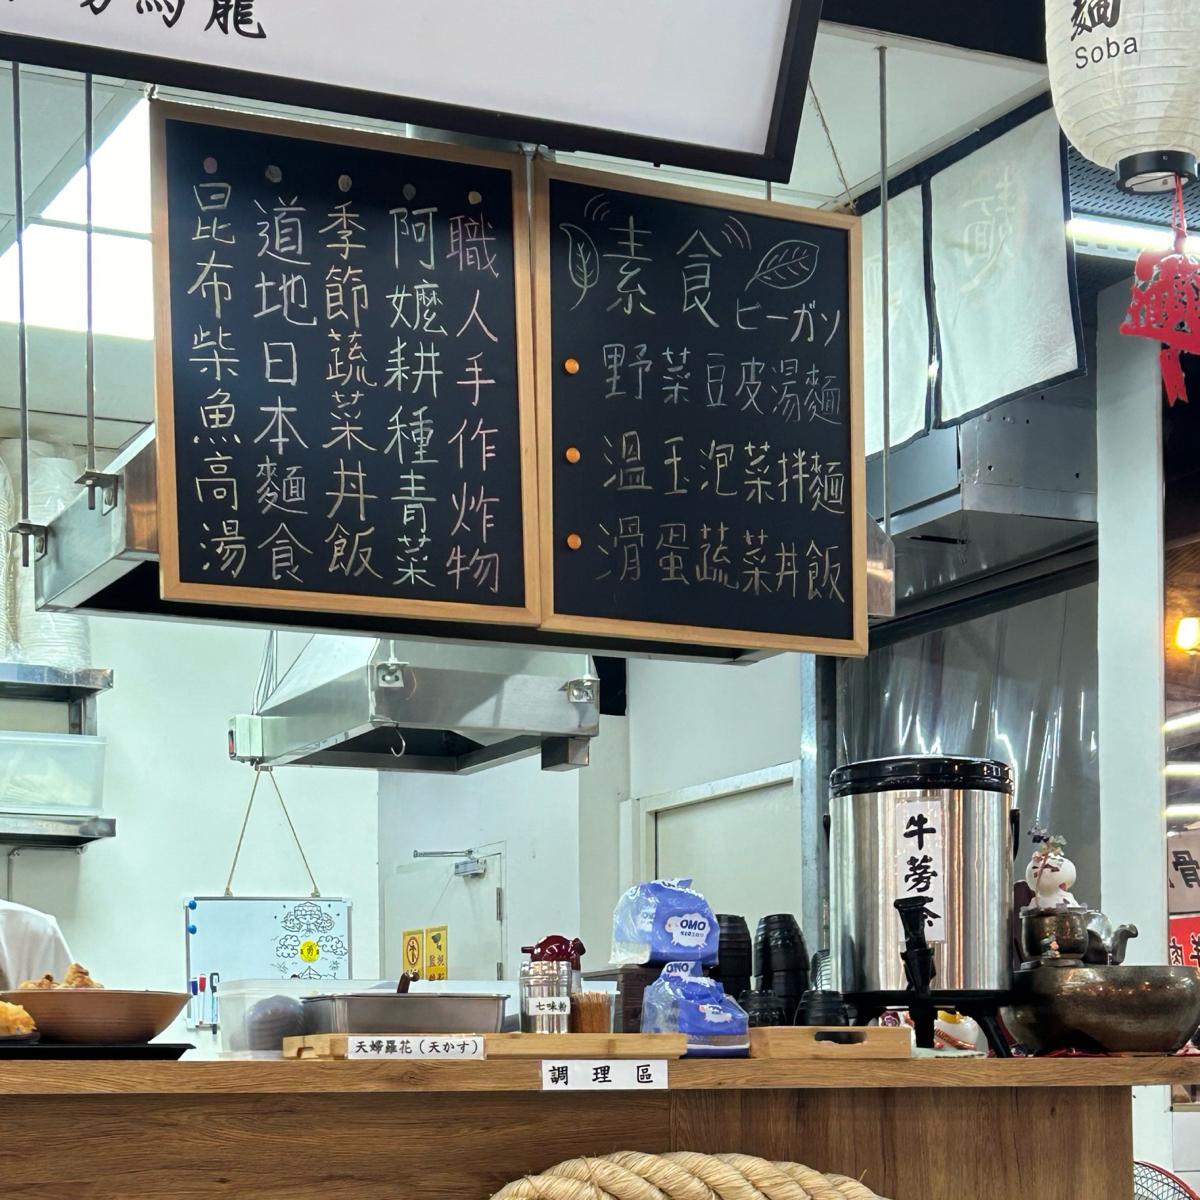 烏龍
麵
Soba
職人手作炸物
阿嬤耕種青菜
季節蔬菜丼飯
道地日本麵食
昆布柴魚高湯
素食
ビーガン
野菜豆皮湯麵
溫玉泡菜拌麵
滑蛋蔬菜丼飯
牛蒡茶
OMO
OMO
七味粉
天婦羅花(天かす)
調理區